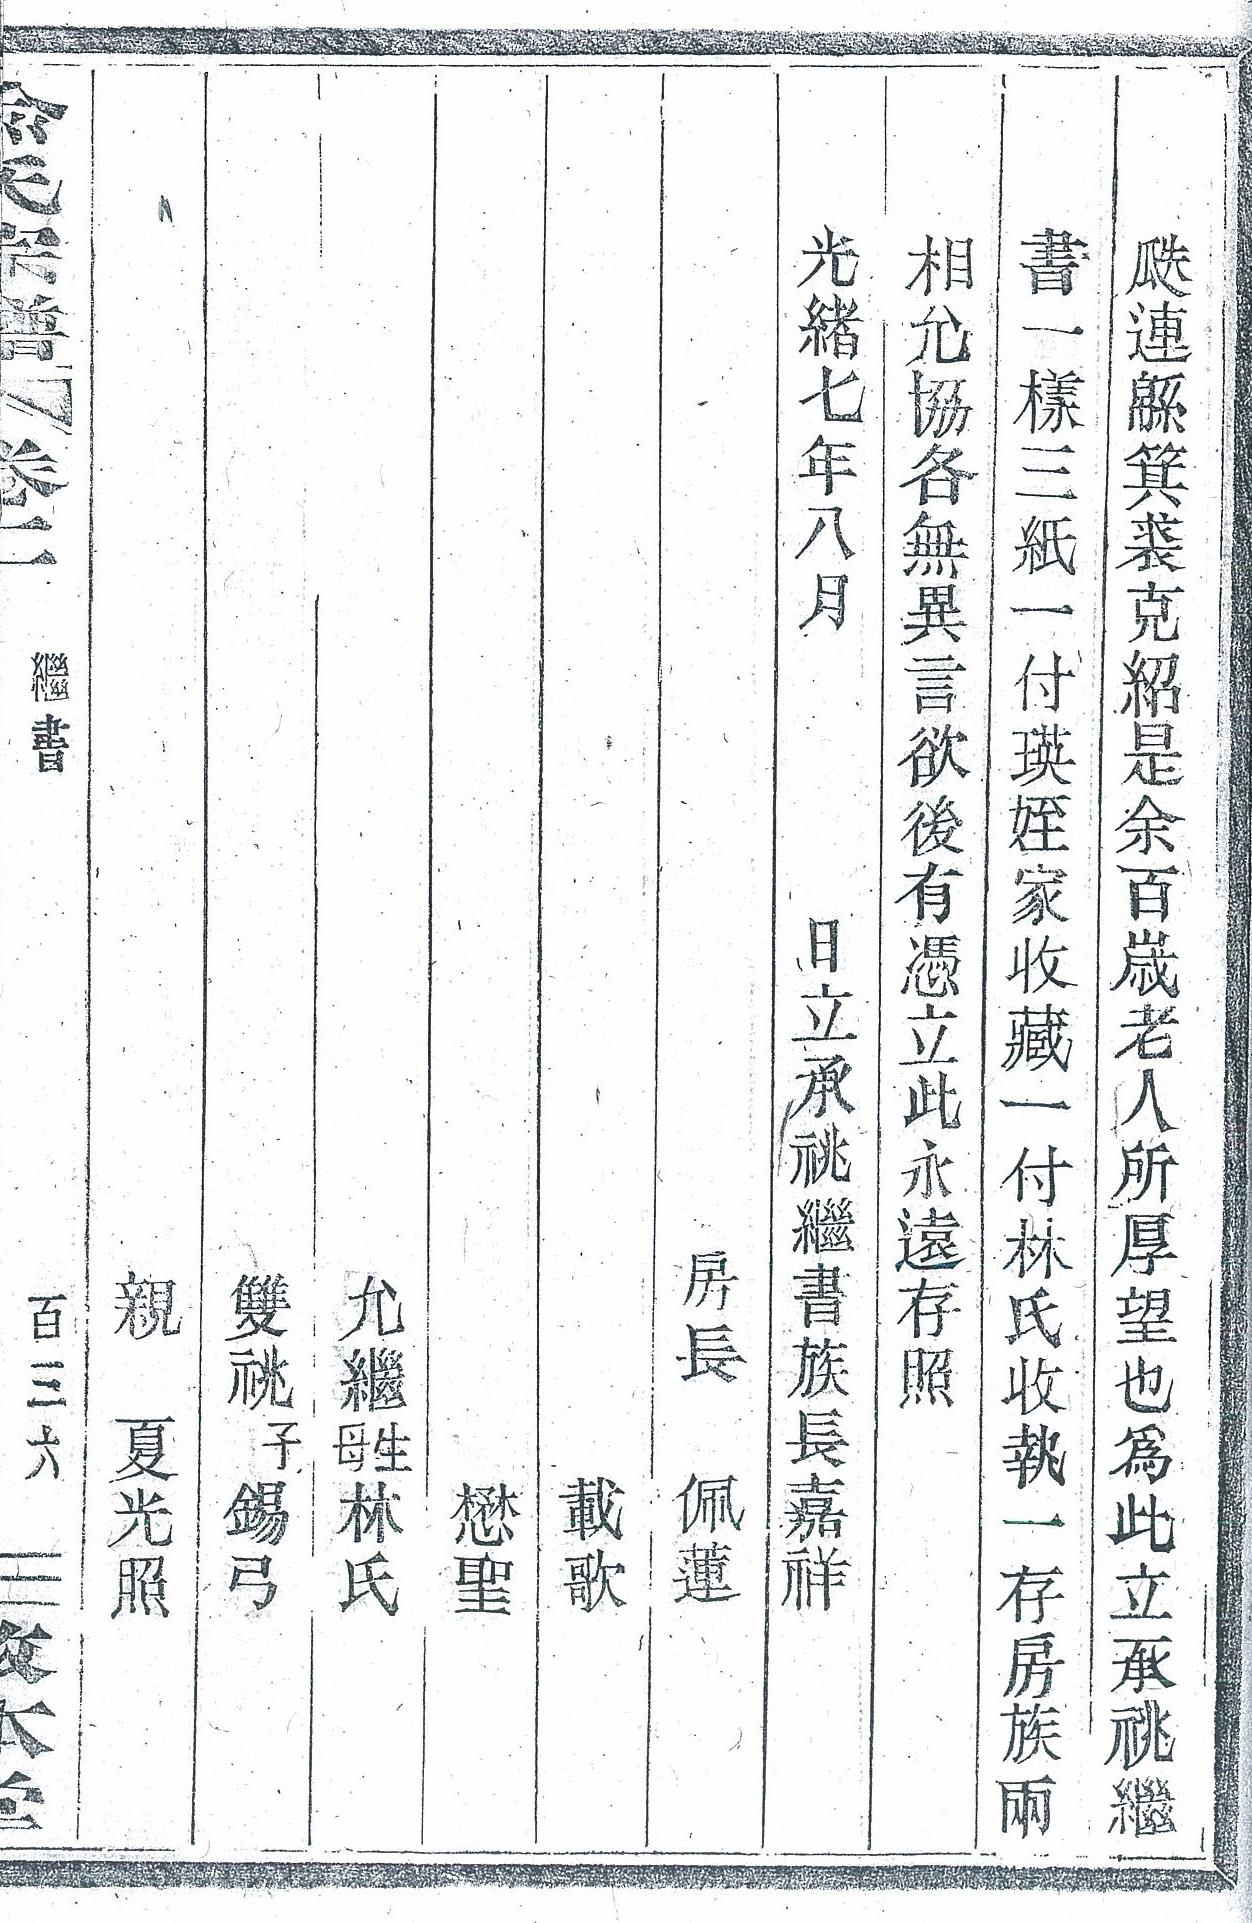 瓞連緜箕裘克紹是余百歲老人所厚望也爲此立承祧繼
書一樣三紙一付瑛姪家收藏一付林氏收執一存房族兩
相允協各無異言欲後有憑立此永遠存照
光緒七年八月 日立承祧繼書族長嘉祥
房長 佩蓮
載歌
懋聖
允繼生母林氏
雙祧子錫弓
親 夏光照
氏宗譜 卷二 繼書 百三六 敦本堂